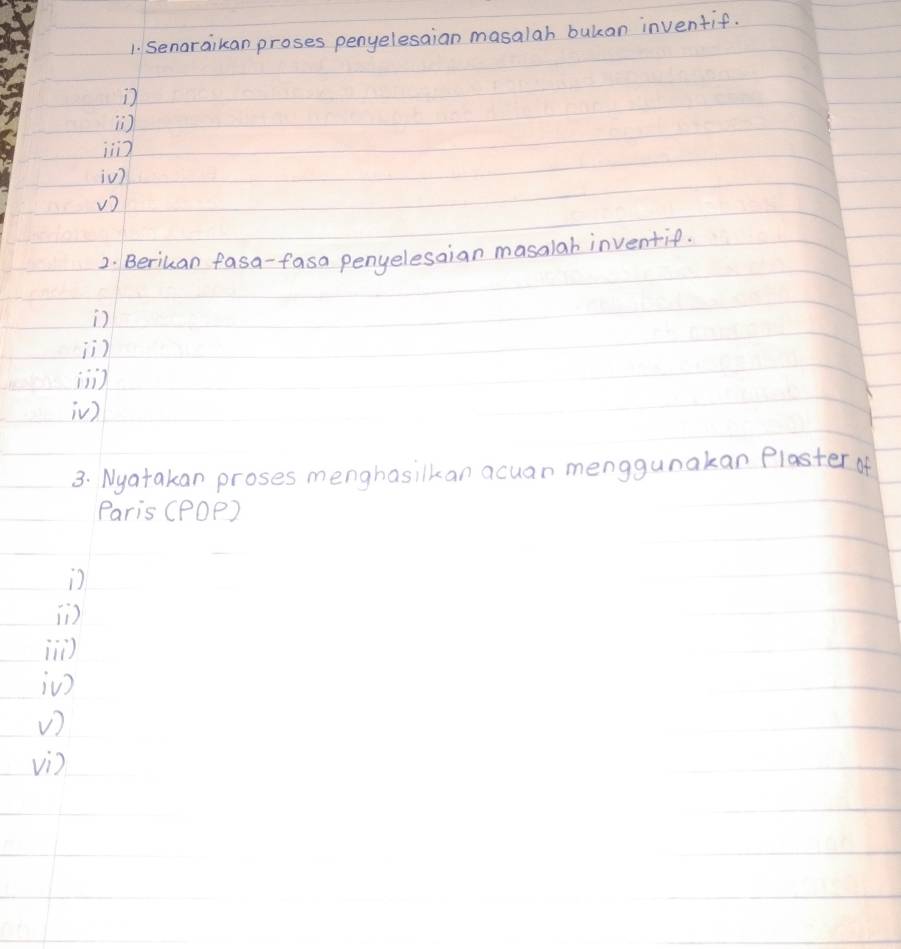 1. Senaraikan proses penyelesaian masalah bukan inventif.
i)
ii)
iii)
iv)
v)
2. Berikan fasa-fasa penyelesaian masalah inventif.
i)
ii)
iii)
iv)
3. Nyatakan proses menghasilkan acuan menggunakan Plaster of
Paris (POP)
i)
ii)
iii)
iv)
v)
vi)